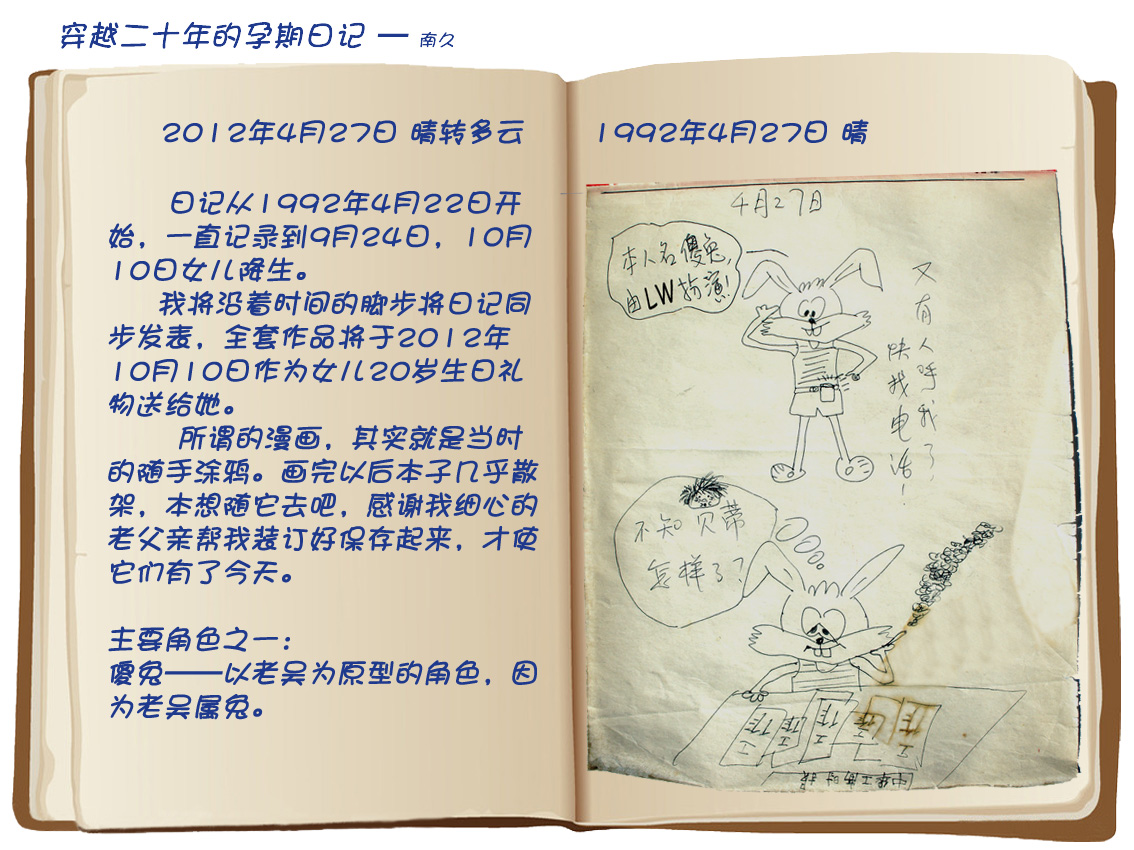 穿越二十年的孕期日记 — 南久
2012年4月27日 晴转多云
日记从1992年4月22日开
始，一直记录到9月24日，10月
10日女儿降生。
我将沿着时间的脚步将日记同
步发表，全套作品将于2012年
10月10日作为女儿20岁生日礼
物送给她。
所谓的漫画，其实就是当时
的随手涂鸦。画完以后本子几乎散
架，本想随它去吧，感谢我细心的
老父亲帮我装订好保存起来，才使
它们有了今天。
主要角色之一：
傻兔——以老吴为原型的角色，因
为老吴属兔。
1992年4月27日 晴
4月27日
本人名傻兔，
由LW扮演！
又有人呼我了
快找电话！
不知贝蒂
怎样了？
工作
工作
工作
工作
工作
中华工商时报